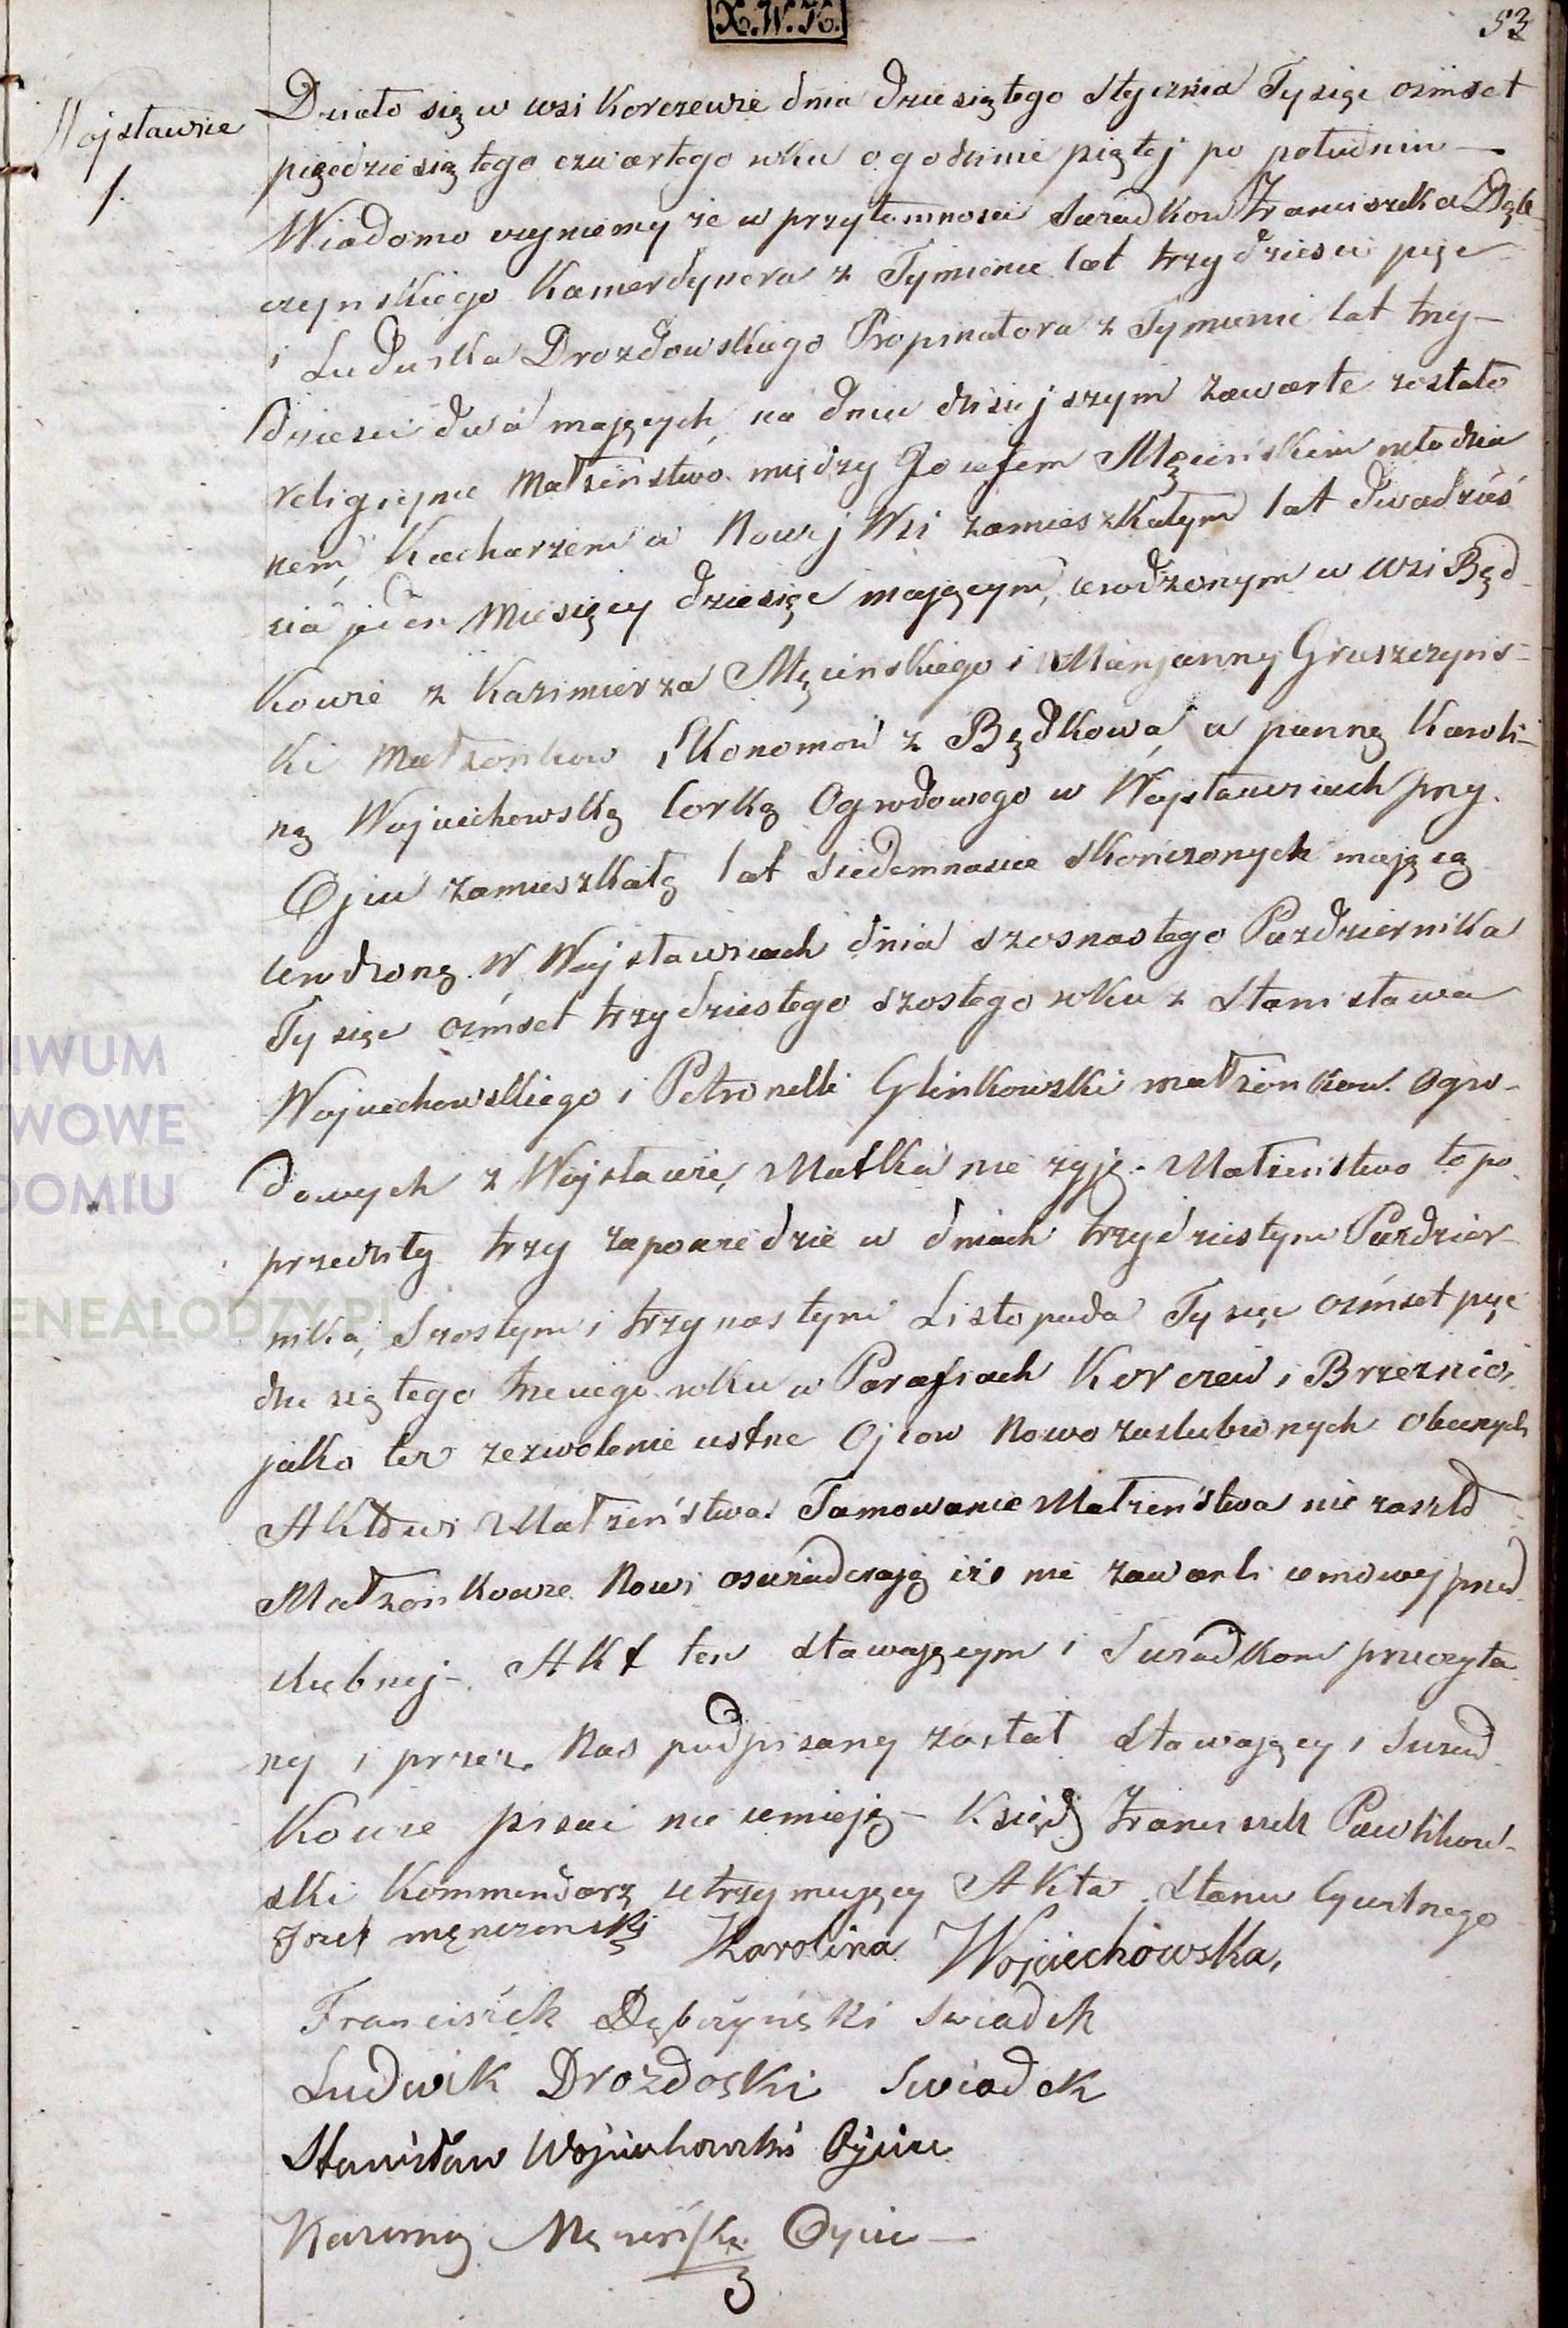 X.W.K.
53
Wojsławice
1.
Działo się w wsi Korczewie dnia dziesiątego Stycznia Tysiąc ośmset
pięćdziesiątego czwartego roku o godzinie piątej po południu —
Wiadomo czyniemy że w przytomności Świadkow Franciszka Dęb-
czynskiego Kamerdynera z Tymienic lat trzydzieści pięć
i Ludwika Drozdowskiego Propinatora z Tymienic lat trzy-
dzieści dwa mających, na dniu dzisiejszym zawarte zostało
religijne Małżeństwo między Jozefem Męcińskim młodzia
nem, Kucharzem w Nowej Wsi zamieszkałym lat dwadzieś
cia jeden Miesięcy dziesięć mającym, urodzonym w wsi Będ-
kowie z Kazimierza Męcinskiego i Maryanny Gruszczyńs-
ki Małżonkow Ekonomow z Będkowa, a panną Karoli-
ną Wojciechowską Corką Ogrodowego w Wojsławicach przy
Ojcu zamieszkałą lat siedemnaście skończonych mającą
urodzoną w Wojsławicach dnia szesnastego Pazdziernika
Tysiąc ośmset trzydziestego szostego roku z Stanisława
Wojciechowskiego i Petronelli Glinkowski małżonkow Ogro-
dowych z Wojsławic, Matka nie żyje. Małżeństwo to po-
przedziły trzy zapowiedzie w dniach trzydziestym Pazdzier-
nika, Szostym i trzynastym Listopada Tysiąc ośmset pięć
dziesiątego trzeciego roku w Parafiach Korczew i Brzeznio,
jako też zezwolenie ustne Ojcow Nowozaslubionych obecnych
Aktowi Małżeństwa. Tamowanie Małżeństwa nie zaszło
Małżonkowie Nowi oswiadczają iż nie zawarli umowy przed
slubnej. Akt ten stawającym i Swiadkom przeczyta
ny i przez Nas podpisany został Stawający i Swiad-
kowie pisać nie umieją — Ksiądz Franciszek Pawlikow-
ski Kommendarz utrzymujący Akta Stanu Cywilnego
Jozef męnczenski Karolina Wojciechówska,
Franciszek Dębczyński Swiadek
Ludwik Drozdoski Swiadek
Stanisław Wojciechowski Oyciec
Kazimirz Męcińsky Oyciec —
IWUM
WOWE
DOMIU
ENEALODZY.PL